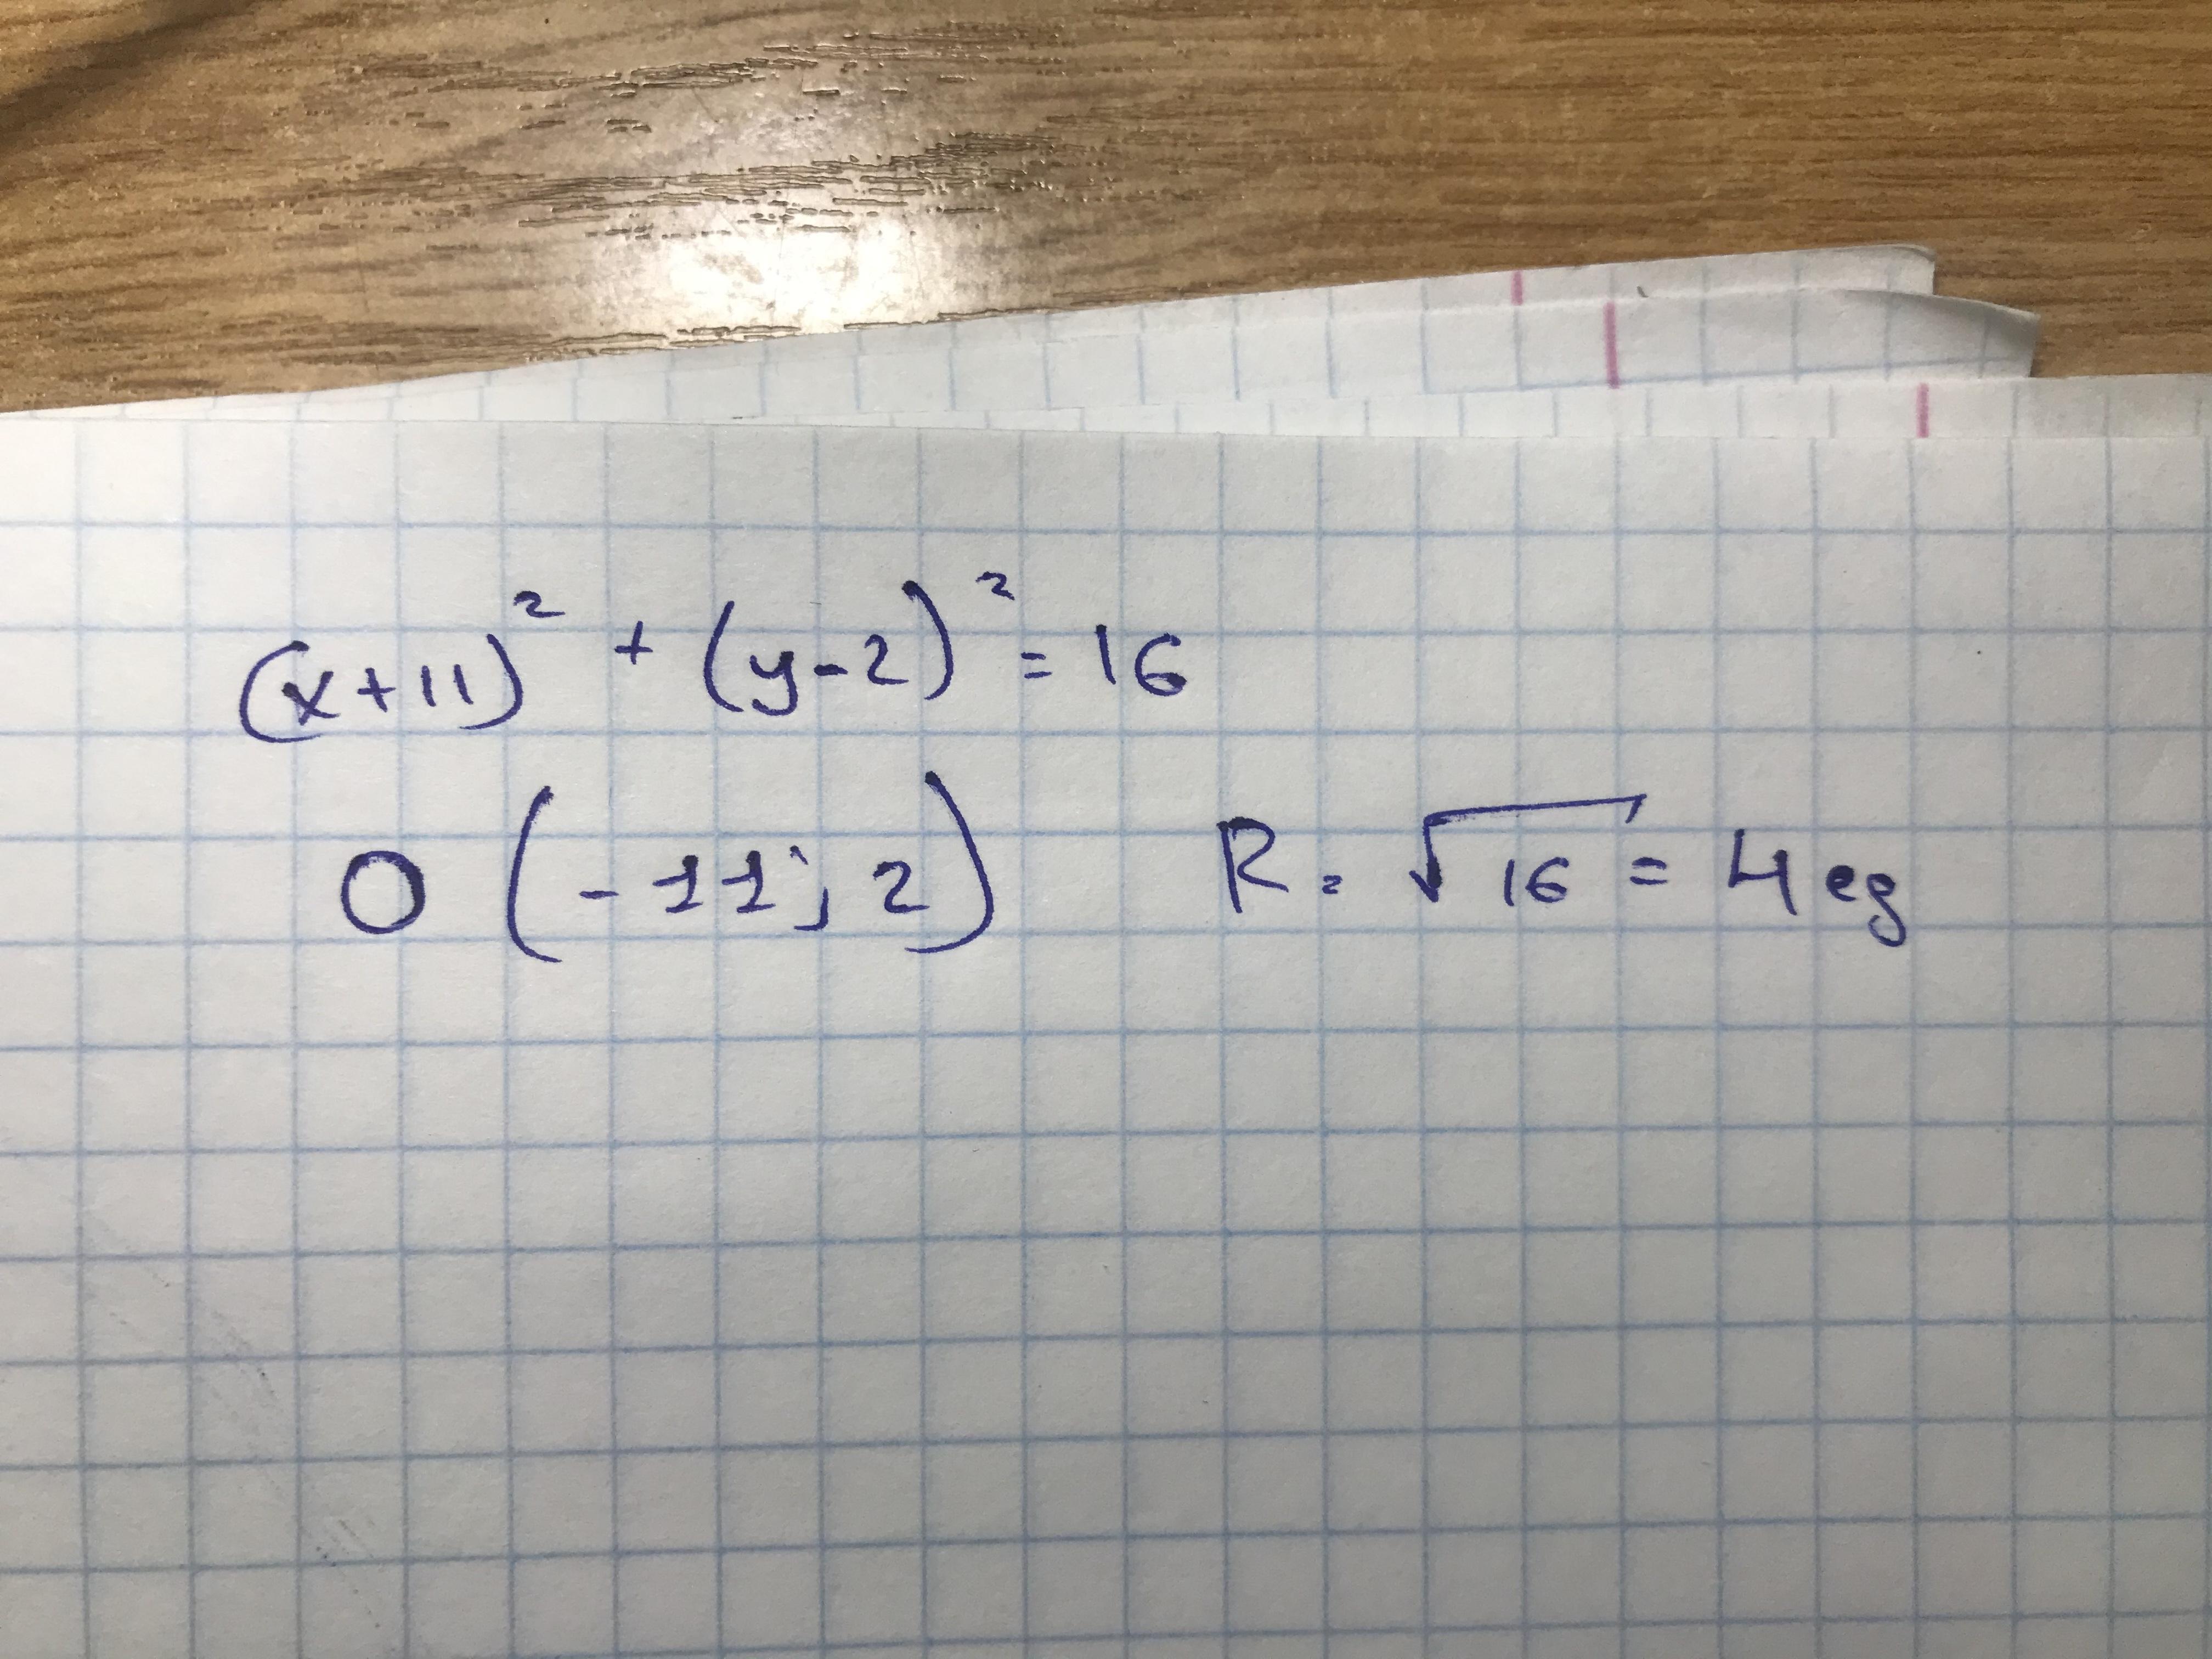 (x+11)² + (y-2)² = 16
O (-11; 2) R = √16 = 4 eg